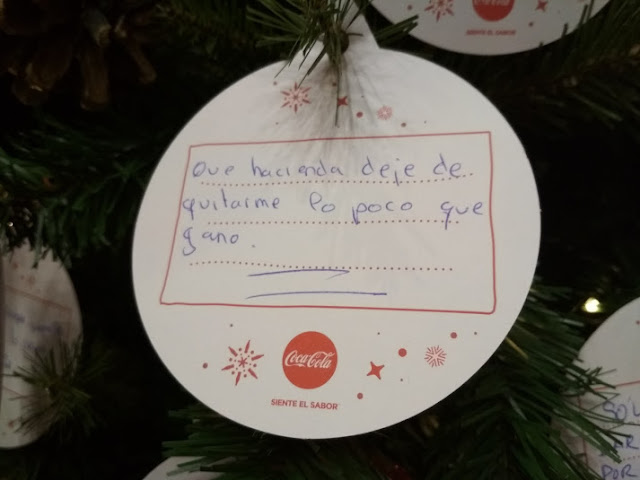 SIENTE EL SABOR
Que hacienda deje de
quitarme lo poco que
gano.
Coca-Cola
SIENTE EL SABOR
SOL
POR